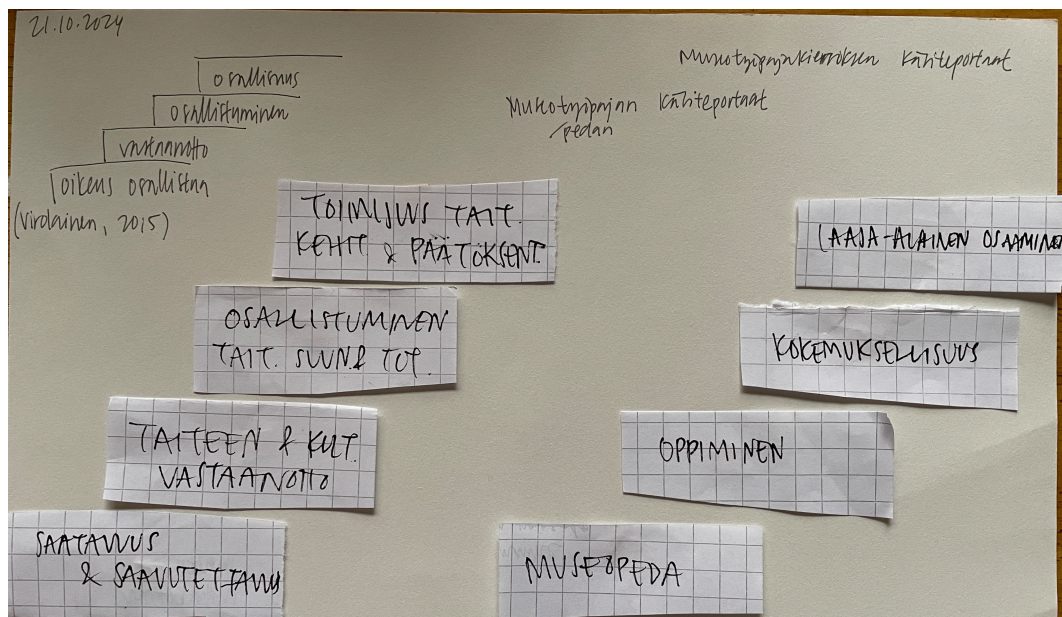 21.10.2024
osallisuus
osallistuminen
vastaanotto
oikeus osallistua
(Virolainen, 2015)
Museotyöpajakierroksen käsiteportaat
Museotyöpajan käsiteportaat
/pedan
TOIMIJUUS TAIT.
KEHIT. & PÄÄTÖKSENT.
OSALLISTUMINEN
TAIT. SUUN. & TOT.
TAITEEN & KULT.
VASTAANOTTO
SAATAVUUS
& SAAVUTETTAVUUS
LAAJA-ALAINEN OSAAMINEN
KOKEMUKSELLISUUS
OPPIMINEN
MUSEOPEDA